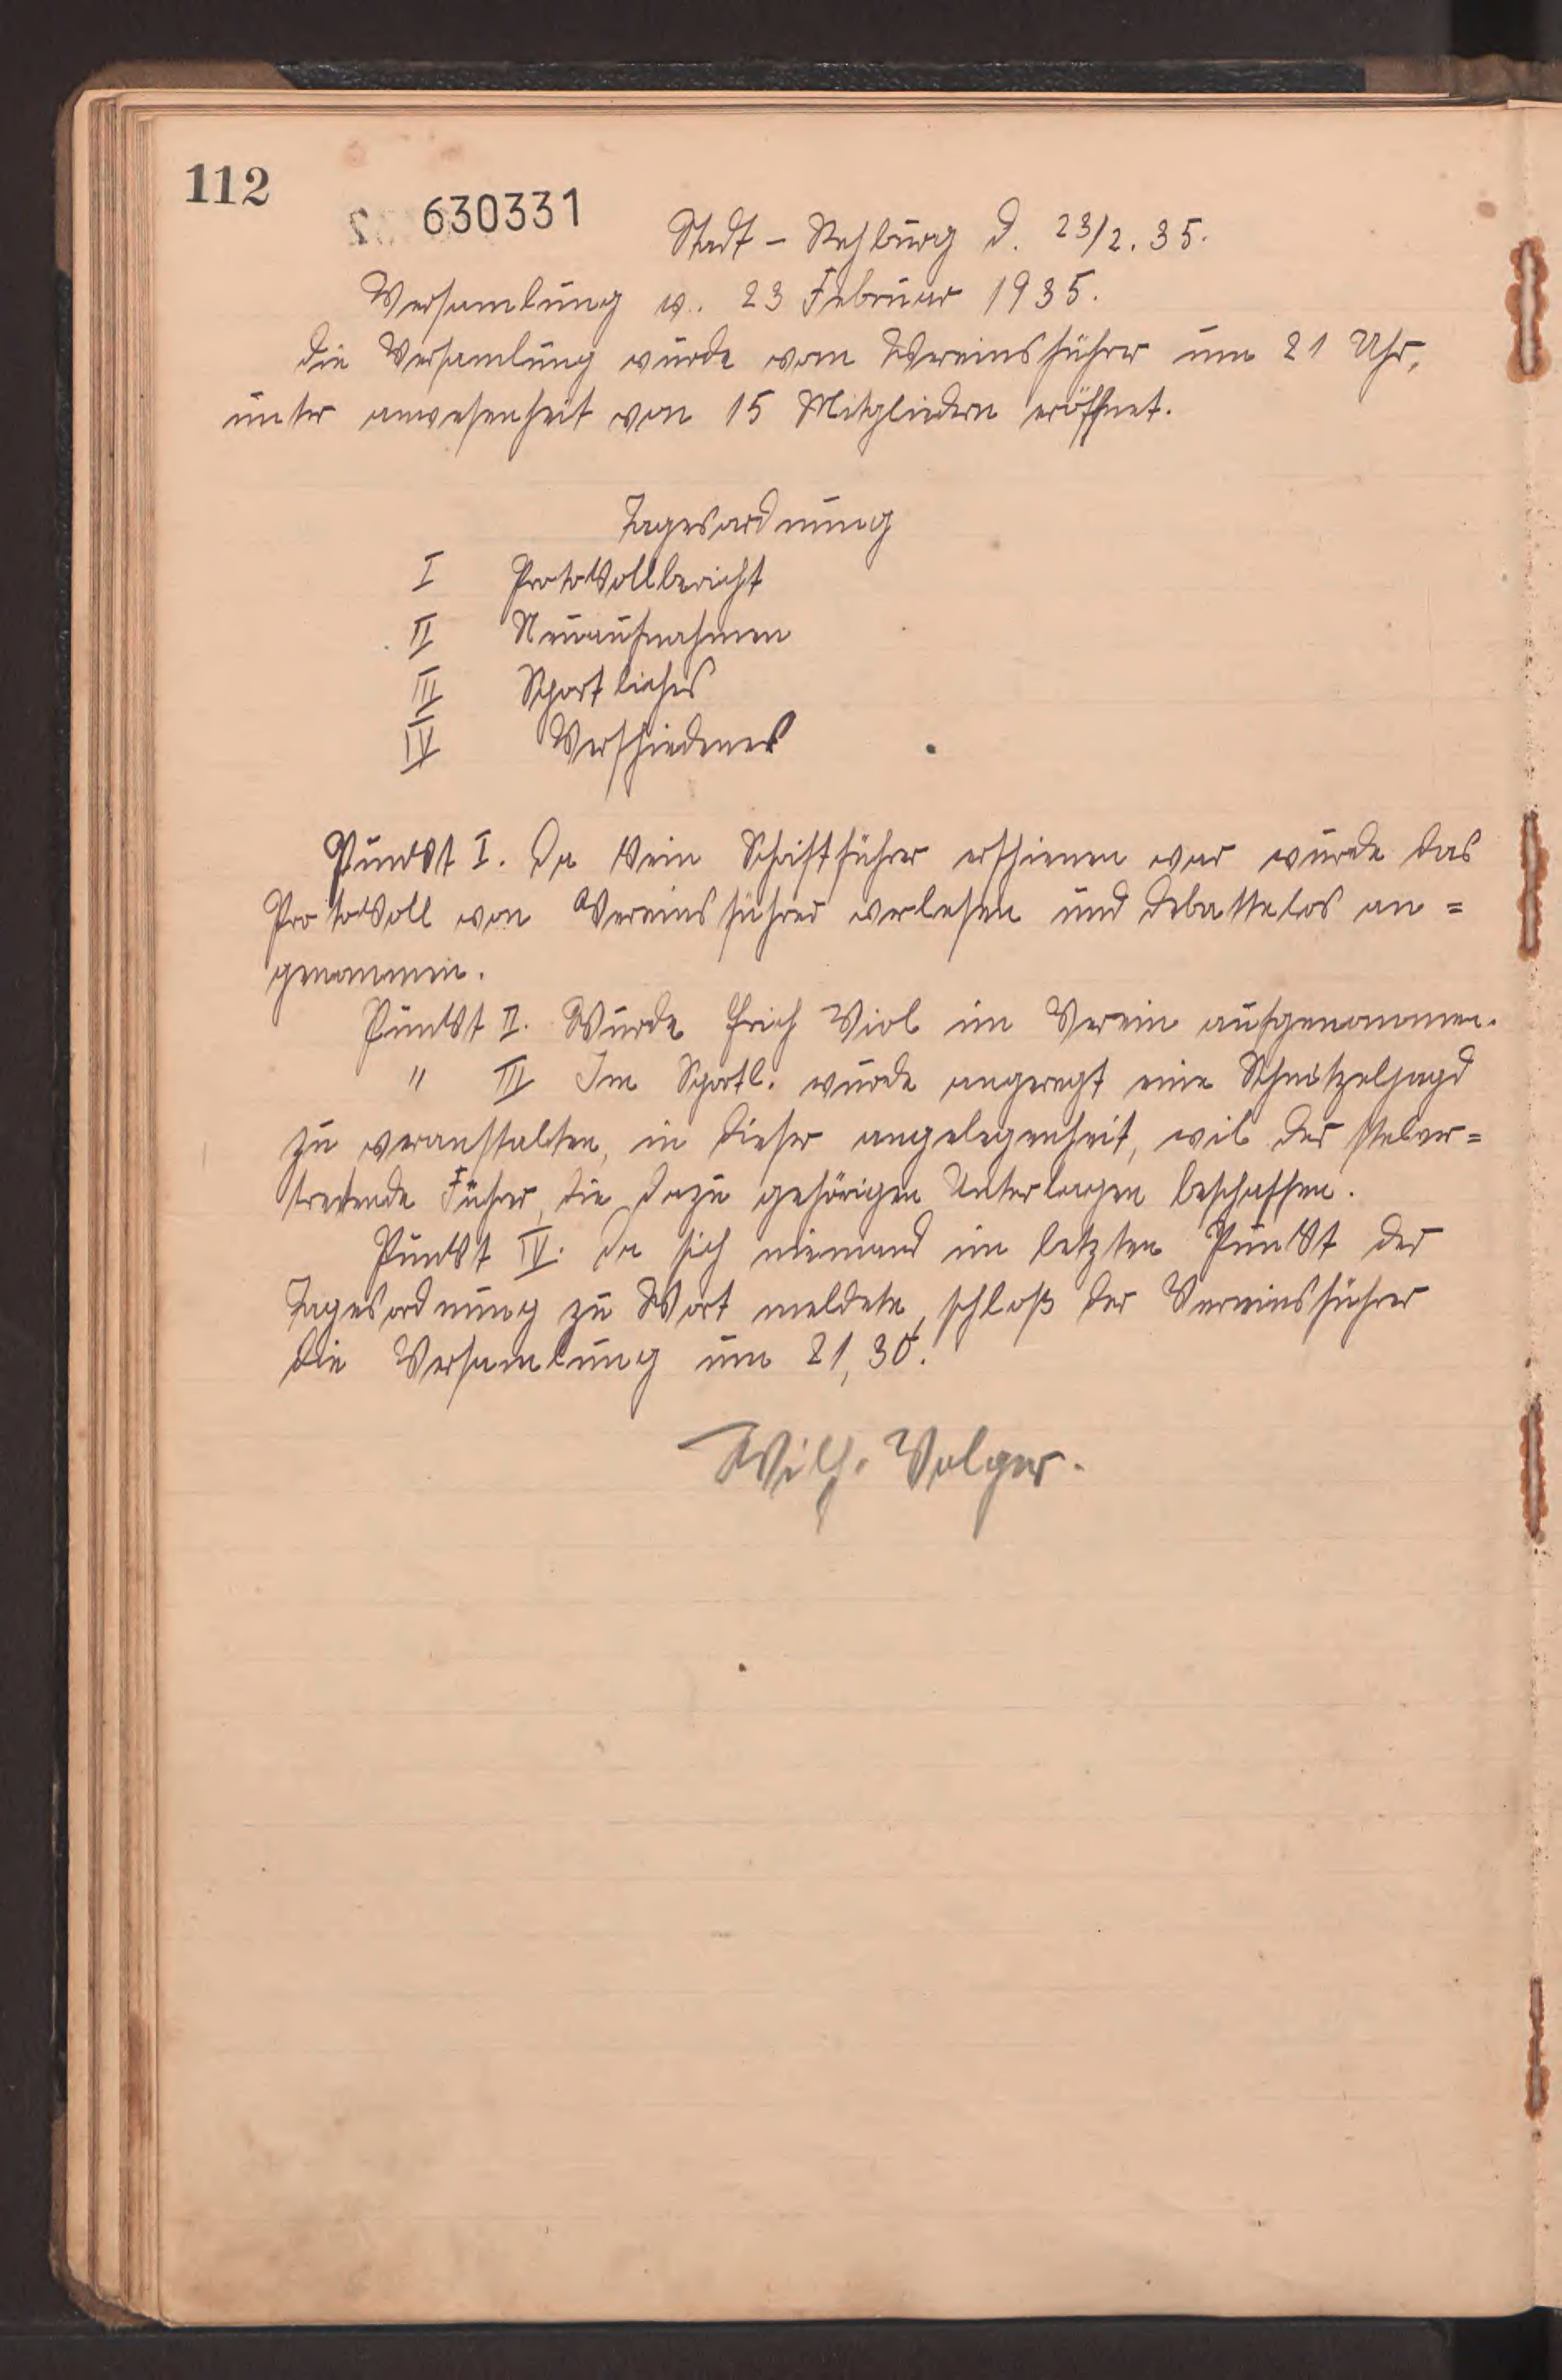 112
630331
Stadt - Rehburg d. 23/2. 35.
Versamlung v. 23 Februar 1935.
Die Versamlung wurde vom Vereinsführer um 21 Uhr,
unter anwesenheit von 15 Mitgliedern eröffnet.
Tagesordnung
I Protokollbericht
II Neuaufnahmen
III Sportliches
IV Verschiedenes
Punkt I. Da kein Schriftführer erschienen war wurde das
Protokoll von Vereinsführer verlesen und debattelos an=
genommen.
Punkt II. Wurde Erich Viol im Verein aufgenommen.
" III Im Sportl. wurde angeregt eine Schnitzeljagd
zu veranstalten, in dieser angelegenheit, wil der stelver=
tretende Führer, die dazu gehörigen Unterlagen beschaffen.
Punkt IV. Da sich niemand im letzten Punkt der
Tagesordnung zu Wort meldete, schloß der Vereinsführer
die Versamlung um 21,30.
Wilh. Volger.